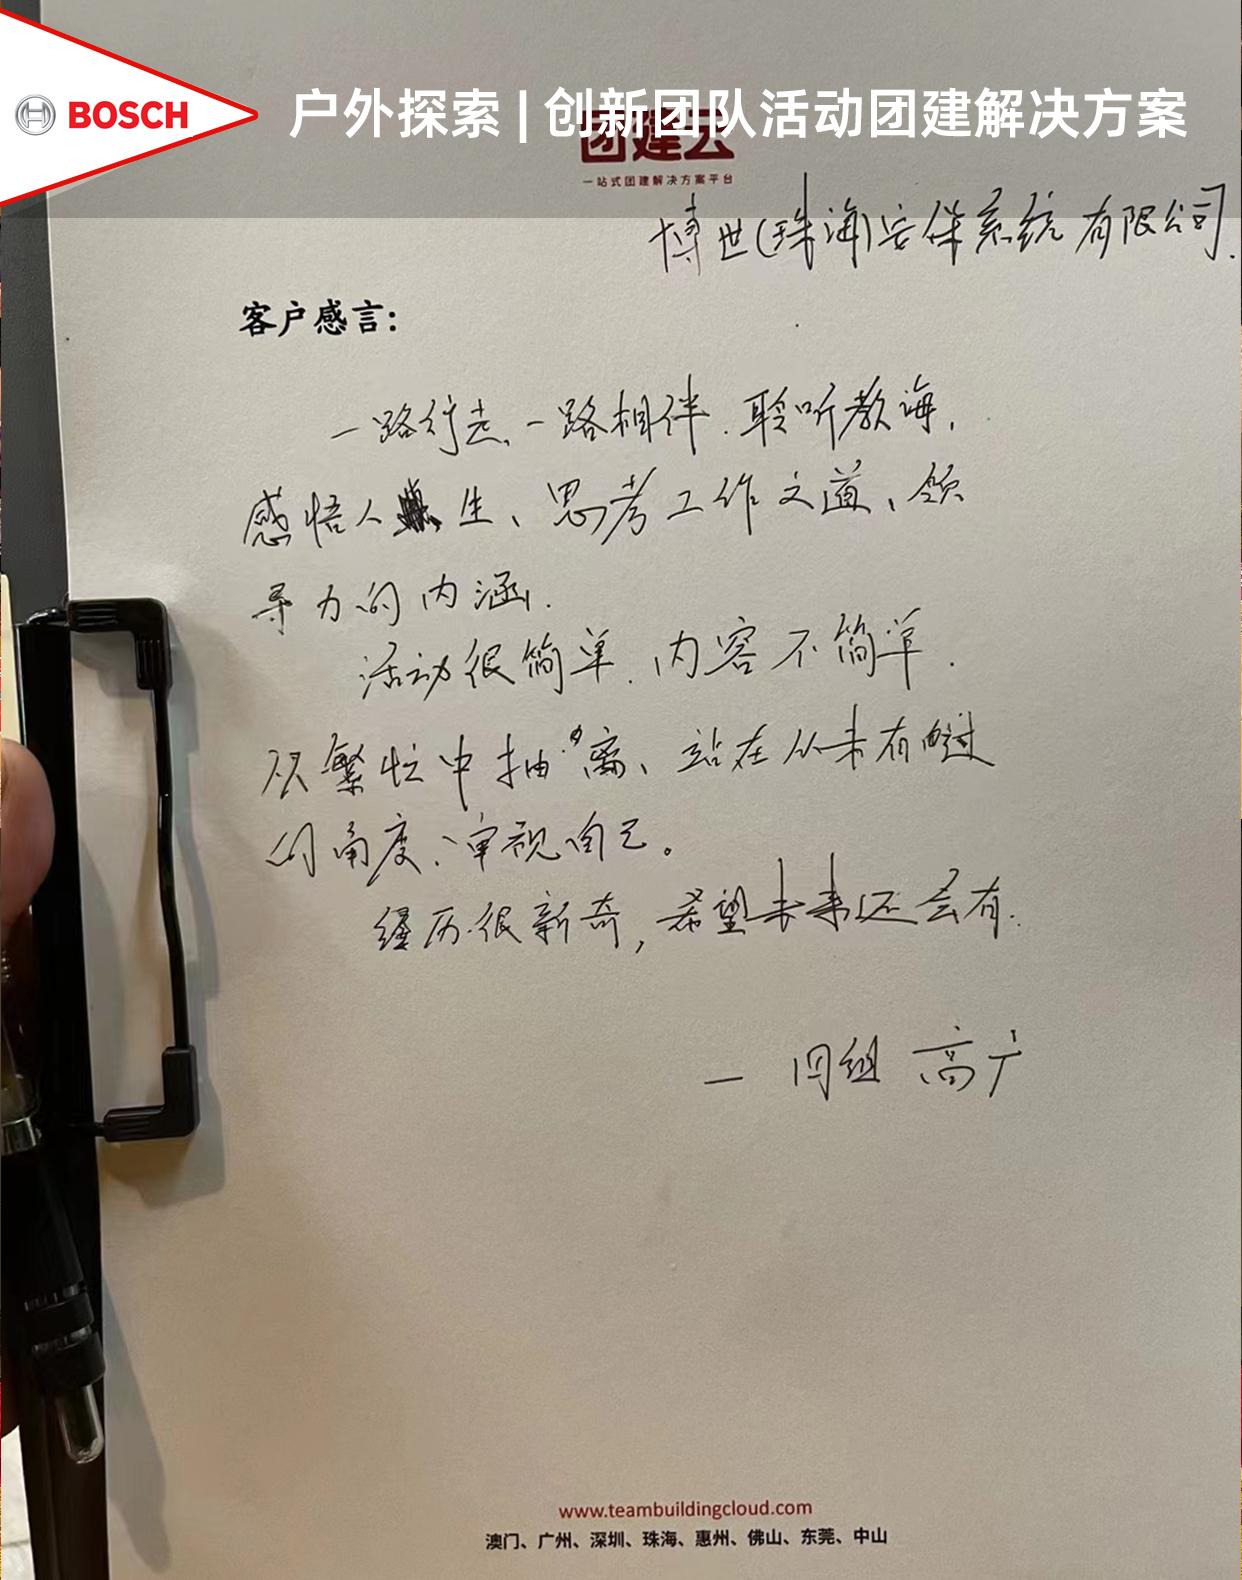 BOSCH
户外探索 | 创新团队活动团建解决方案
团建云
一站式团建解决方案平台
博世(珠海)安保系统有限公司.
客户感言:
一路行走、一路相伴.聆听教诲,
感悟人生、思考工作之道、领
导力的内涵.
活动很简单.内容不简单.
从繁忙中抽离、站在从未有过
的角度、审视自己。
经历很新奇,希望未来还会有.
— 四组 高广
www.teambuildingcloud.com
澳门、广州、深圳、珠海、惠州、佛山、东莞、中山